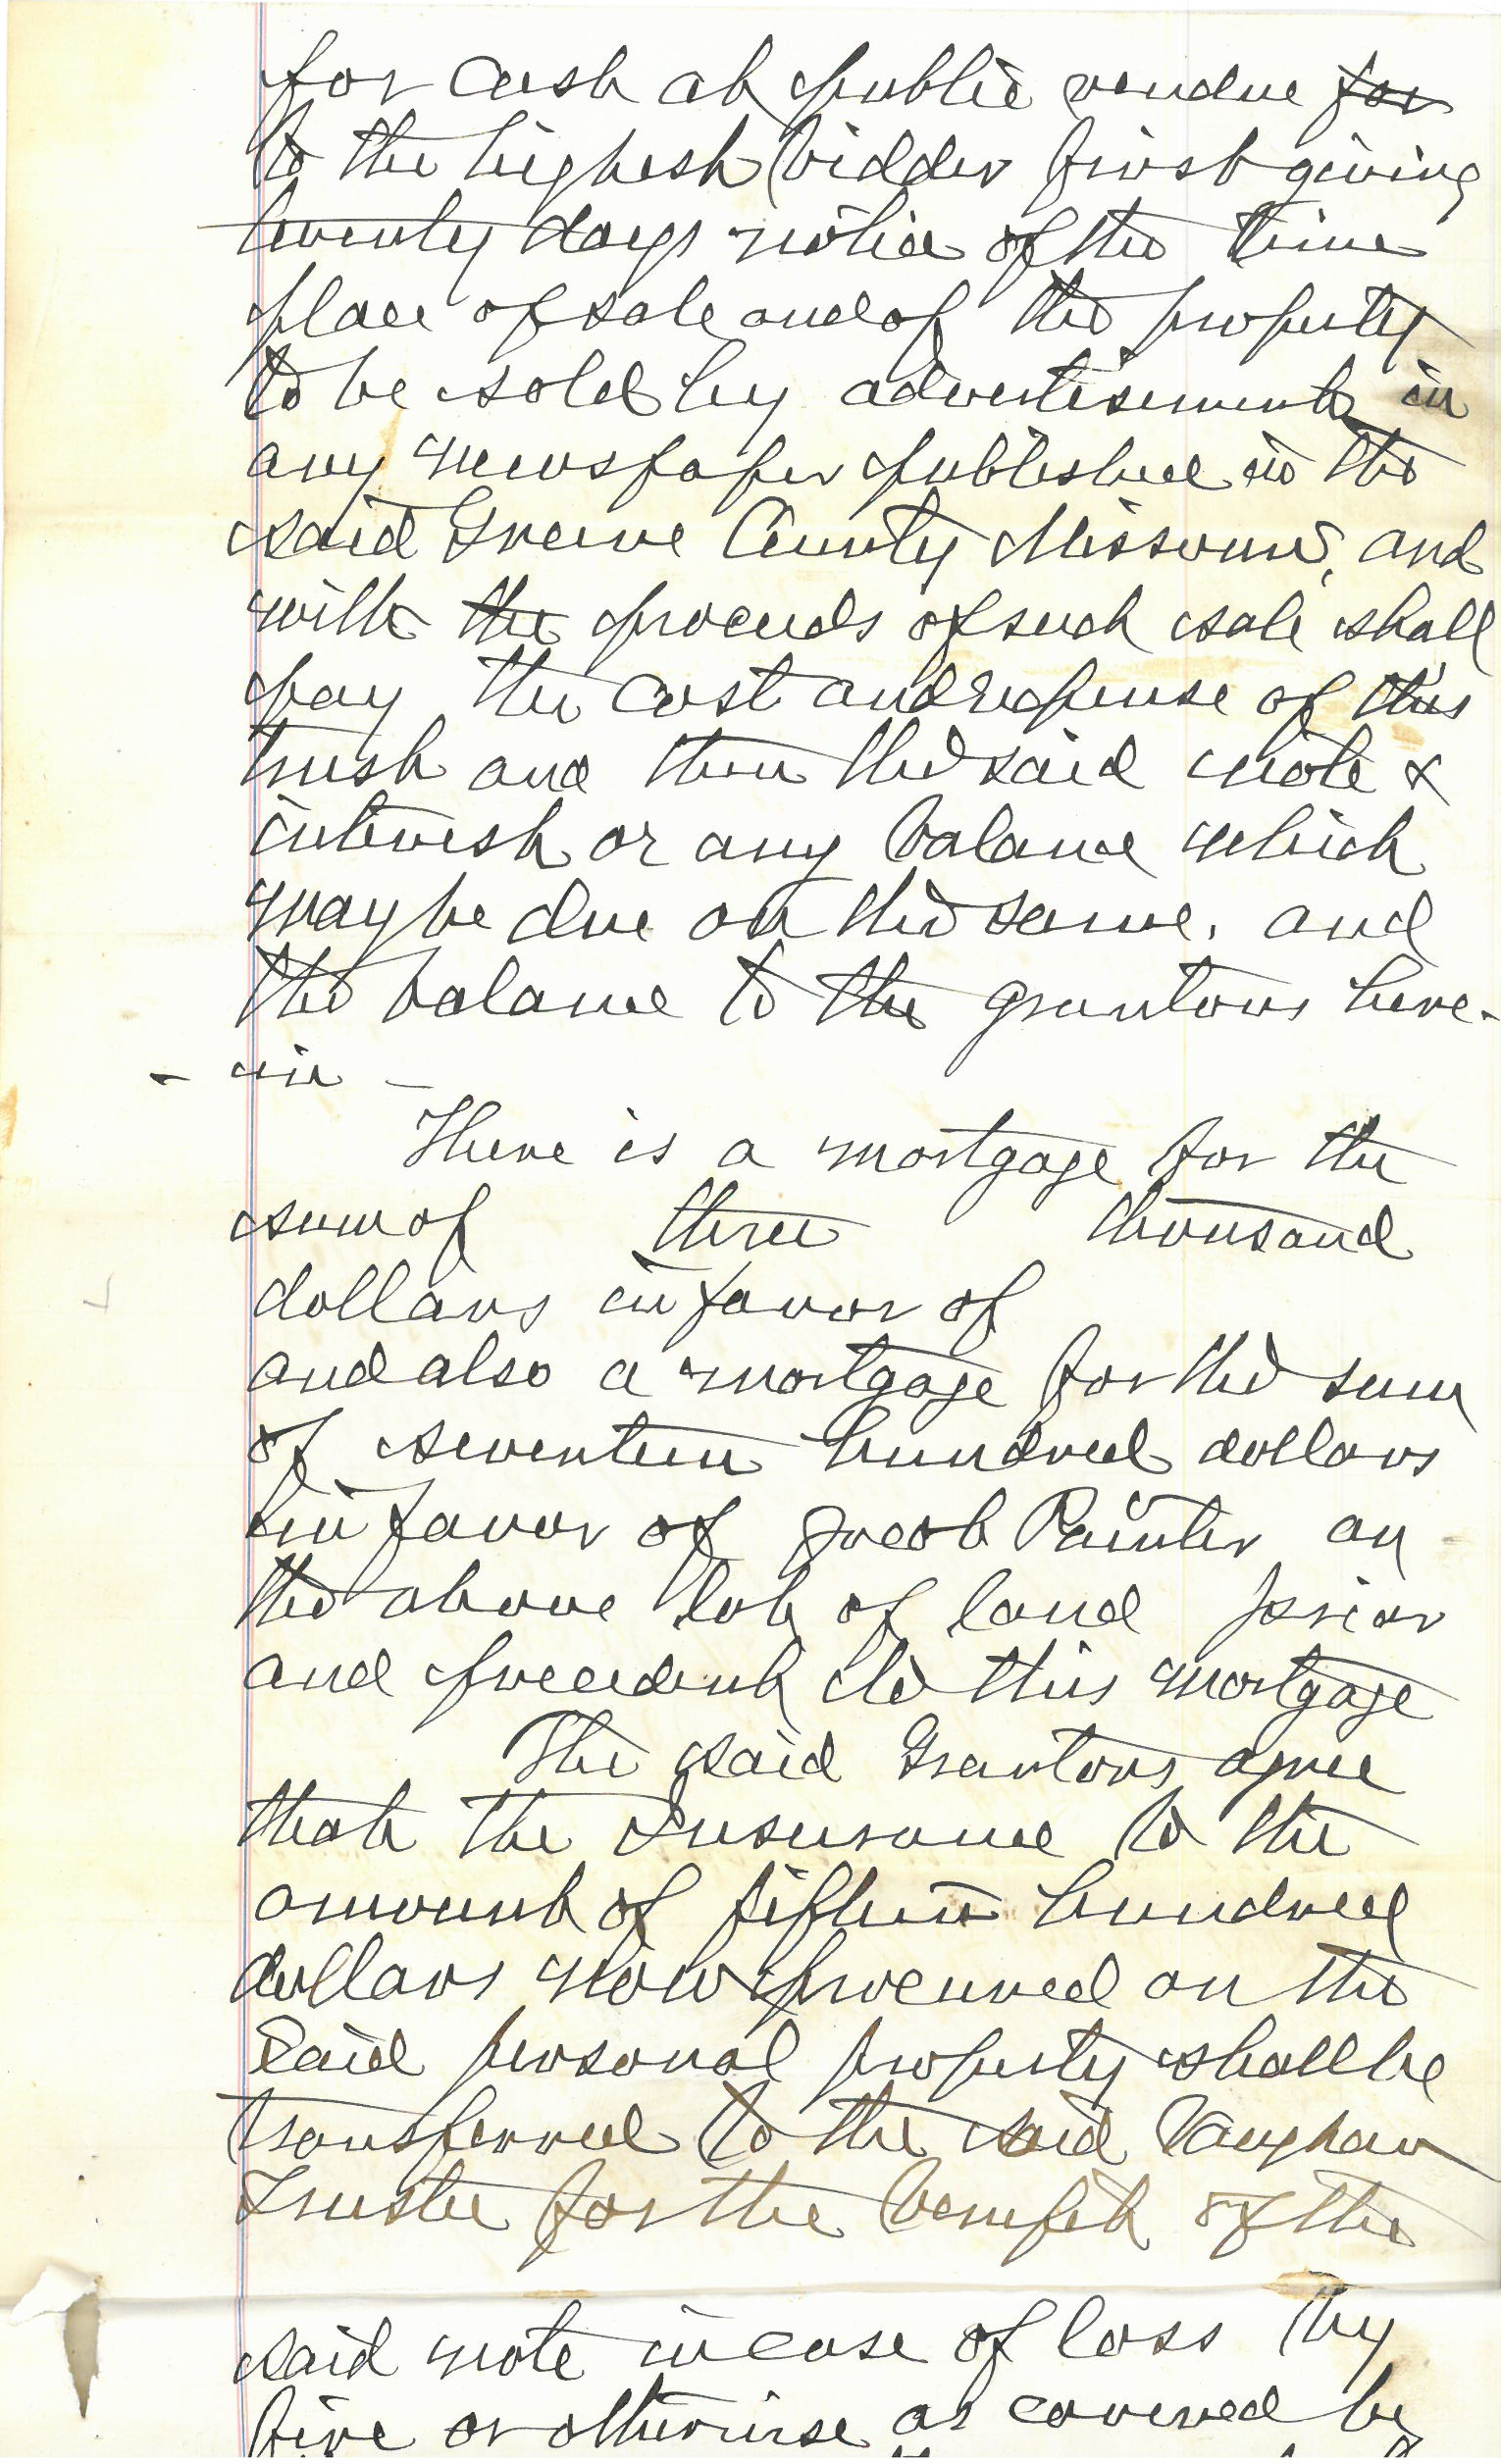 for cash at public vendue for
to the highest bidder first giving
twenty days notice of the time
place of sale and of the property
to be sold by advertisement in
any newspaper published in the
said Greene County Missouri, and
with the proceeds of such sale shall
pay the cost and expense of this
trust and then the said note &
interest or any balance which
may be due on the same. and
the balance to the grantors here-
- in -
There is a mortgage for the
sum of three thousand
dollars in favor of
and also a mortgage for the sum
of seventeen hundred dollars
in favor of Jacob Painter on
the above lot of land prior
and precedent to this mortgage
The said Grantors agree
that the Insurance to the
amount of fifteen hundred
dollars now procured on the
Said personal property shall be
transferred to the said Vaughan
Trustee for the benefit of the
said note in case of loss by
fire or otherwise as covered by